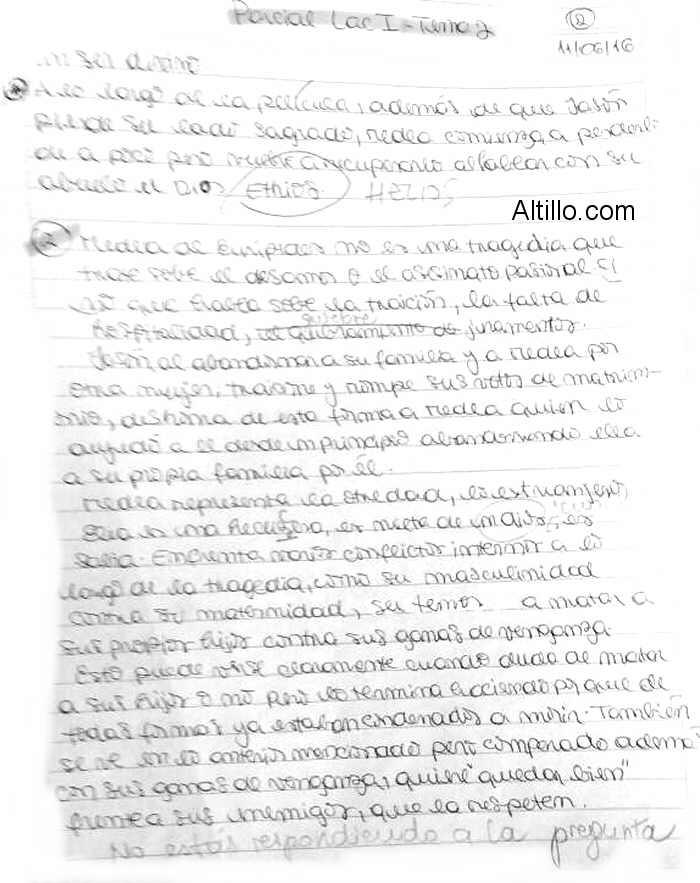 Parcial Lac I - Tema 2
2
11/06/16
en ser divino
A lo largo de la película, además de que Jasón
pierde su lado sagrado, Medea comienza a perderlo
de a poco pero vuelve a recuperarlo al hablar con su
abuelo el Dios Ethios. HELIOS
Altillo.com
2 Medea de Eurípides no es una tragedia que
trate sobre el desamor o el asesinato pasional si
no que trata sobre la traición, la falta de
hospitalidad, juramentos.
Jasón al abandonar a su familia y a Medea por
otra mujer, traiciona y rompe sus votos de matrimo-
nio, deshonra de esta forma a Medea quien lo
ayudó a él desde un principio abandonando ella
a su propia familia por él.
Medea representa la otredad, lo extranjero,
ella es una hechicera, es nieta de un dios, es
sabia. Encuentra varios conflictos internos a lo
largo de la tragedia, como su masculinidad
contra su maternidad, su temor a matar a
sus propios hijos contra sus ganas de venganza.
Esto puede verse claramente cuando duda de matar
a sus hijos o no pero lo termina haciendo porque de
todas formas ya estaban condenados a morir. También
se ve en lo anterior mencionado pero comparado además
con sus ganas de venganza, quiere "quedar bien"
frente a sus enemigos, que la respeten.
No estás respondiendo a la pregunta